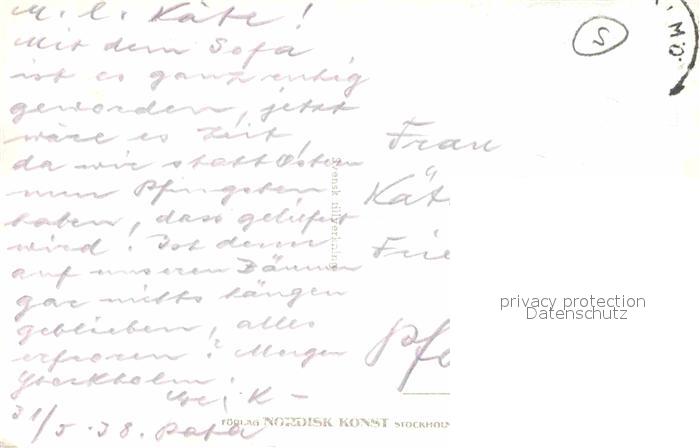 M. l. Käte!
Mit dem Sofa
ist es ganz ruhig
geworden, jetzt
wäre es Zeit,
da wir statt Ostern
nun Pfingsten
haben, dass geliefert
wird! Ist denn
auf unseren Bäumen
gar nichts hängen
geblieben, alles
erfroren? Morgen
Stockholm!
K –
31/5.38. Papa
Frau
Kät
Frie
Pfo
S
MÖ.
Svensk tillverkning
FÖRLAG NORDISK KONST STOCKHOLM
privacy protection
Datenschutz